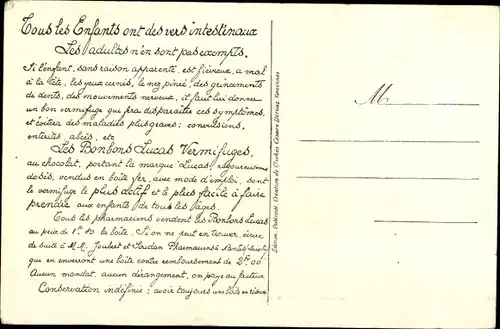 Tous les Enfants ont des vers intestinaux
Les adultes n'en sont pas exempts.
Si l'enfant, sans raison apparente, est fiévreux, a mal
à la tête, les yeux cernés, le nez pincé, des grincements
de dents, des mouvements nerveux, il faut lui donner
un bon vermifuge qui fera disparaître ces symptômes,
et évitera des maladies plus graves: convulsions,
entérites, abcès, etc
Les Bonbons Lucas Vermifuges,
au chocolat, portant la marque Lucas, rigoureusement
dosés, vendus en boîte fer, avec mode d'emploi, sont
le vermifuge le plus actif et le plus facile à faire
prendre aux enfants de tous les âges.
Tous les pharmaciens vendent les Bonbons Lucas
au prix de 1f.80 la boîte. Si on ne peut en trouver, écrire
de suite à M.M. Joubert et Soudan Pharmaciens à
qui en enverront une boîte contre remboursement de 2f.00
Aucun mandat, aucun dérangement, on paye au facteur
Conservation indéfinie: avoir toujours une boîte en réserve
Edition, Publicité, Création de Clichés
M